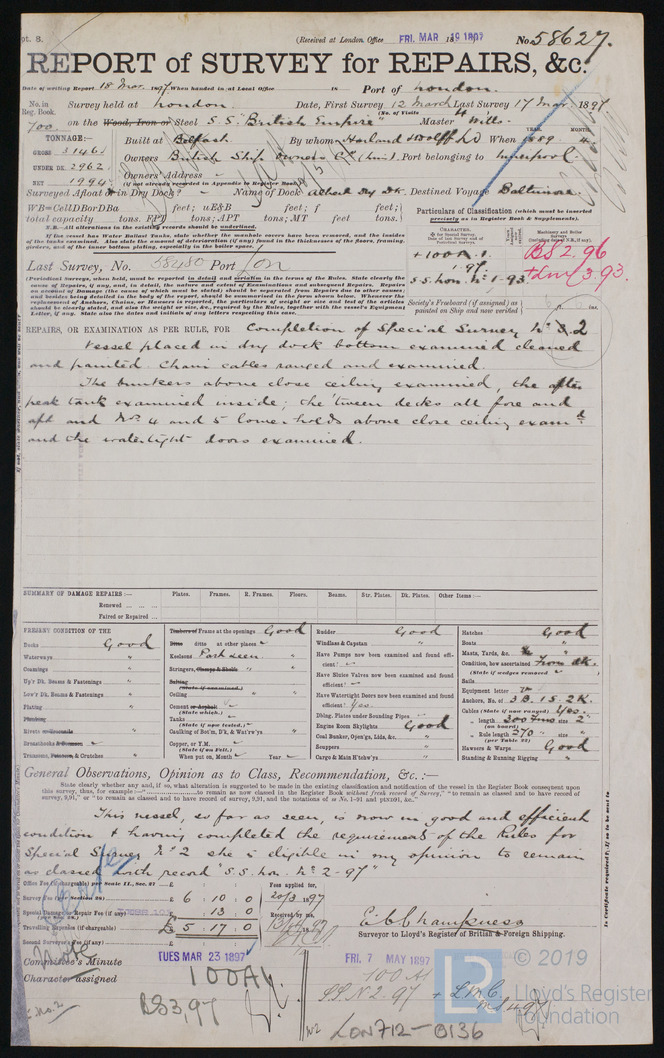 pt. 8.
(Received at London Office FRI. MAR 19 1897
No. 58627.
REPORT of SURVEY for REPAIRS, &c.
Date of writing Report 18 Mar. 1897 When handed in at Local Office 18 Port of London.
No. in Reg. Book. Survey held at London Date, First Survey 12 March Last Survey 17 Mar. 1897
700. on the Wood, Iron or Steel S.S. "British Empire" (No. of Visits 4 Master Mills.
TONNAGE:— Built at Belfast By whom Harland & Wolff Ld When 1889 YEAR. MONTH. 4
GROSS 3146 Owners British Ship Owners Co. (Lim). Port belonging to Liverpool.
UNDER DK. 2962 Owners' Address
NET 1994 (if not already recorded in Appendix to Register Book).
Surveyed Afloat or in Dry Dock? Name of Dock Albert Dry Dk. Destined Voyage Baltimore.
WB=CellDBorDBa feet; uE&B feet; f feet;
total capacity tons. FPT tons; APT tons; MT feet tons.
N.B.—All alterations in the existing records should be underlined.
Particulars of Classification (which must be inserted precisely as in Register Book & Supplements).
If the vessel has Water Ballast Tanks, state whether the manhole covers have been removed, and the insides
of the tanks examined. Also state the amount of deterioration (if any) found in the thicknesses of the floors, framing,
girders, and of the inner bottom plating, especially in the boiler space.
CHARACTER.
+100A.1.
1.97
S.S. Lon. No 1-93
BS 2.96
+LMC 3.93.
Last Survey, No. 58480 Port Lon
(Periodical Surveys, when held, must be reported in detail and seriatim in the terms of the Rules. State clearly the
cause of Repairs, if any, and, in detail, the nature and extent of Examinations and subsequent Repairs. Repairs
on account of Damage (the cause of which must be stated) should be separated from Repairs due to other causes;
and besides being detailed in the body of the report, should be summarized in the form shown below. Whenever the
replacement of Anchors, Chains, or Hawsers is reported, the particulars of weight or size and test of the articles
should be clearly stated, and also the weight or size, &c., required by the Rules, together with the vessel's Equipment
Letter, if any. State also the dates and initials of any letters respecting this case.
Society's Freeboard (if assigned) as
painted on Ship and now verified
ft. ins.
REPAIRS, OR EXAMINATION AS PER RULE, FOR Completion of Special Survey No. 2
Vessel placed in dry dock bottom examined cleaned
and painted. Chain cables ranged and examined
The bunkers above close ceiling examined, the after
peak tank examined inside; the 'tween decks all fore and
aft and Nos. 4 and 5 lower holds above close ceiling examd
and the watertight doors examined.
SUMMARY OF DAMAGE REPAIRS:— Plates. Frames. R. Frames. Floors. Beams. Str. Plates. Dk. Plates. Other Items:—
Renewed ... ... ...
Faired or Repaired ...
PRESENT CONDITION OF THE
Decks Good
Waterways "
Coamings "
Up'r Dk. Beams & Fastenings "
Low'r Dk. Beams & Fastenings "
Plating "
Planking
Rivets or Treenails "
Breasthooks & Pointers "
Transoms, Pointers, & Crutches "
Timbers or Frame at the openings Good
Ditto ditto at other places
Keelsons Part seen "
Stringers, Clamps & Shelfs "
Salting
(State if examined.)
Ceiling " "
Cement or Asphalt
(State which.)
Tanks
(State if now tested.)
Caulking of Bot'm, D'k, & Wat'rw'ys "
Copper, or Y.M.
(State if on Felt.)
When put on, Month Year
Rudder Good
Windlass & Capstan "
Have Pumps now been examined and found efficient?
Have Sluice Valves now been examined and found efficient?
Have Watertight Doors now been examined and found efficient? Yes.
Dblng. Plates under Sounding Pipes
Engine Room Skylights Good
Coal Bunker, Open'gs, Lids, &c. "
Scuppers "
Cargo & Main H'tchw'ys "
Hatches Good
Boats "
Masts, Yards, &c. "
Condition, how ascertained From dk.
(State if wedges removed
Sails
Equipment letter
Anchors, No. of 3B. 1S. 2K.
Cables (State if now ranged) Yes.
" length 300 fms size 2"
(on board)
" Rule length 270 " size "
(per Table 22)
Hawsers & Warps Good
Standing & Running Rigging "
General Observations, Opinion as to Class, Recommendation, &c.:—
State clearly whether any and, if so, what alteration is suggested to be made in the existing classification and notification of the vessel in the Register Book consequent upon
this survey, thus, for example:—"............to remain as now classed in the Register Book without fresh record of Survey," "to remain as classed and to have record of
survey, 9,91," or "to remain as classed and to have record of survey, 9,91, and the notations of ss No.1-91 and ptNB91, &c."
This vessel, so far as seen, is now in good and efficient
condition & having completed the requirements of the Rules for
Special Survey No 2 she is eligible in my opinion to remain
as classed with record "S.S. Lon. No. 2-97"
Office Fee (if chargeable) per Scale II., Sec. 27 £ : :
Survey Fee (per Section 28) £ 6 : 10 : 0
Special Damage or Repair Fee (if any) : 13 : 0
Travelling Expenses (if chargeable) £ 5 : 17 : 0
Second Surveyor's Fee (if any) £
Fees applied for,
20/3 1897
Received by me,
E C Champness
Surveyor to Lloyd's Register of British & Foreign Shipping.
Committee's Minute TUES MAR 23 1897 FRI. 7 MAY 1897
Character assigned 100A1 100A1
BS3,97 SS N2.97 + LMC 4,97
Note
LON712-0136
LR
© 2019
Lloyd's Register
Foundation